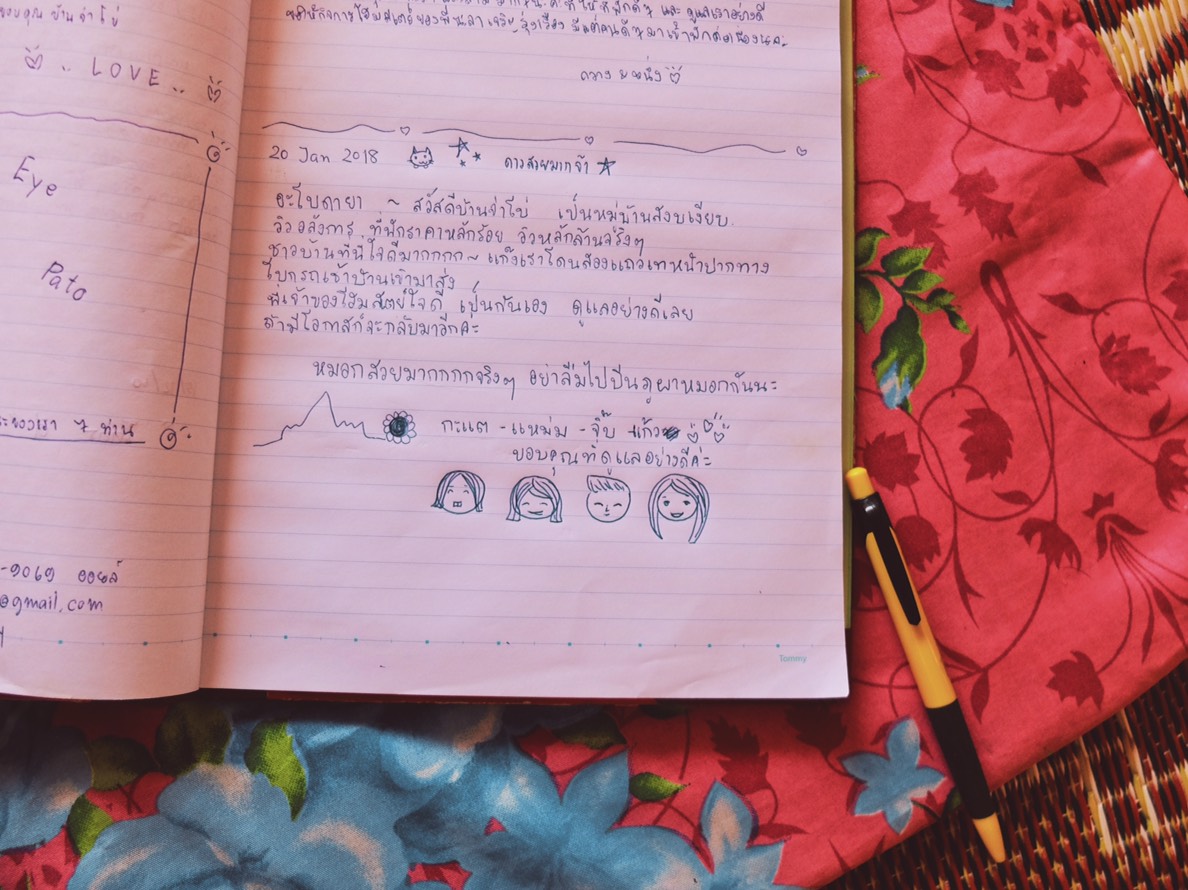 ขอบคุณ บ้านจ่าโบ่
LOVE
Eye
Pato
ของเรา 7 ท่าน
-9069 ออยล์
@gmail.com
และ ดูแลเราอย่างดี
ขอให้กิจการโฮมสเตย์ของพี่ เจริญรุ่งเรือง มีแต่คนดีๆมาเข้าพักต่อเนื่องนะคะ
กวาง หนึ่ง
20 Jan 2018 ดาวสวยมากจ้า
อะโบดายา ~ สวัสดีบ้านจ่าโบ่ เป็นหมู่บ้านสงบเงียบ
วิวอลังการ ที่พักราคาหลักร้อย วิวหลักล้านจริงๆ
ชาวบ้านที่นี่ใจดีมากกกก~ แก๊งเราโดนสองแถวเทหน้าปากทาง
โบกรถเข้าบ้านเข้ามาส่ง
พี่เจ้าของโฮมสเตย์ใจดี เป็นกันเอง ดูแลอย่างดีเลย
ถ้ามีโอกาสก็จะกลับมาอีกค่ะ
หมอกสวยมากกกกจริงๆ อย่าลืมไปปีนภูผาหมอกกันนะ
กะแต -แหม่ม -จุ๊บ -แก้ว
ขอบคุณที่ดูแลอย่างดีค่ะ
Tommy